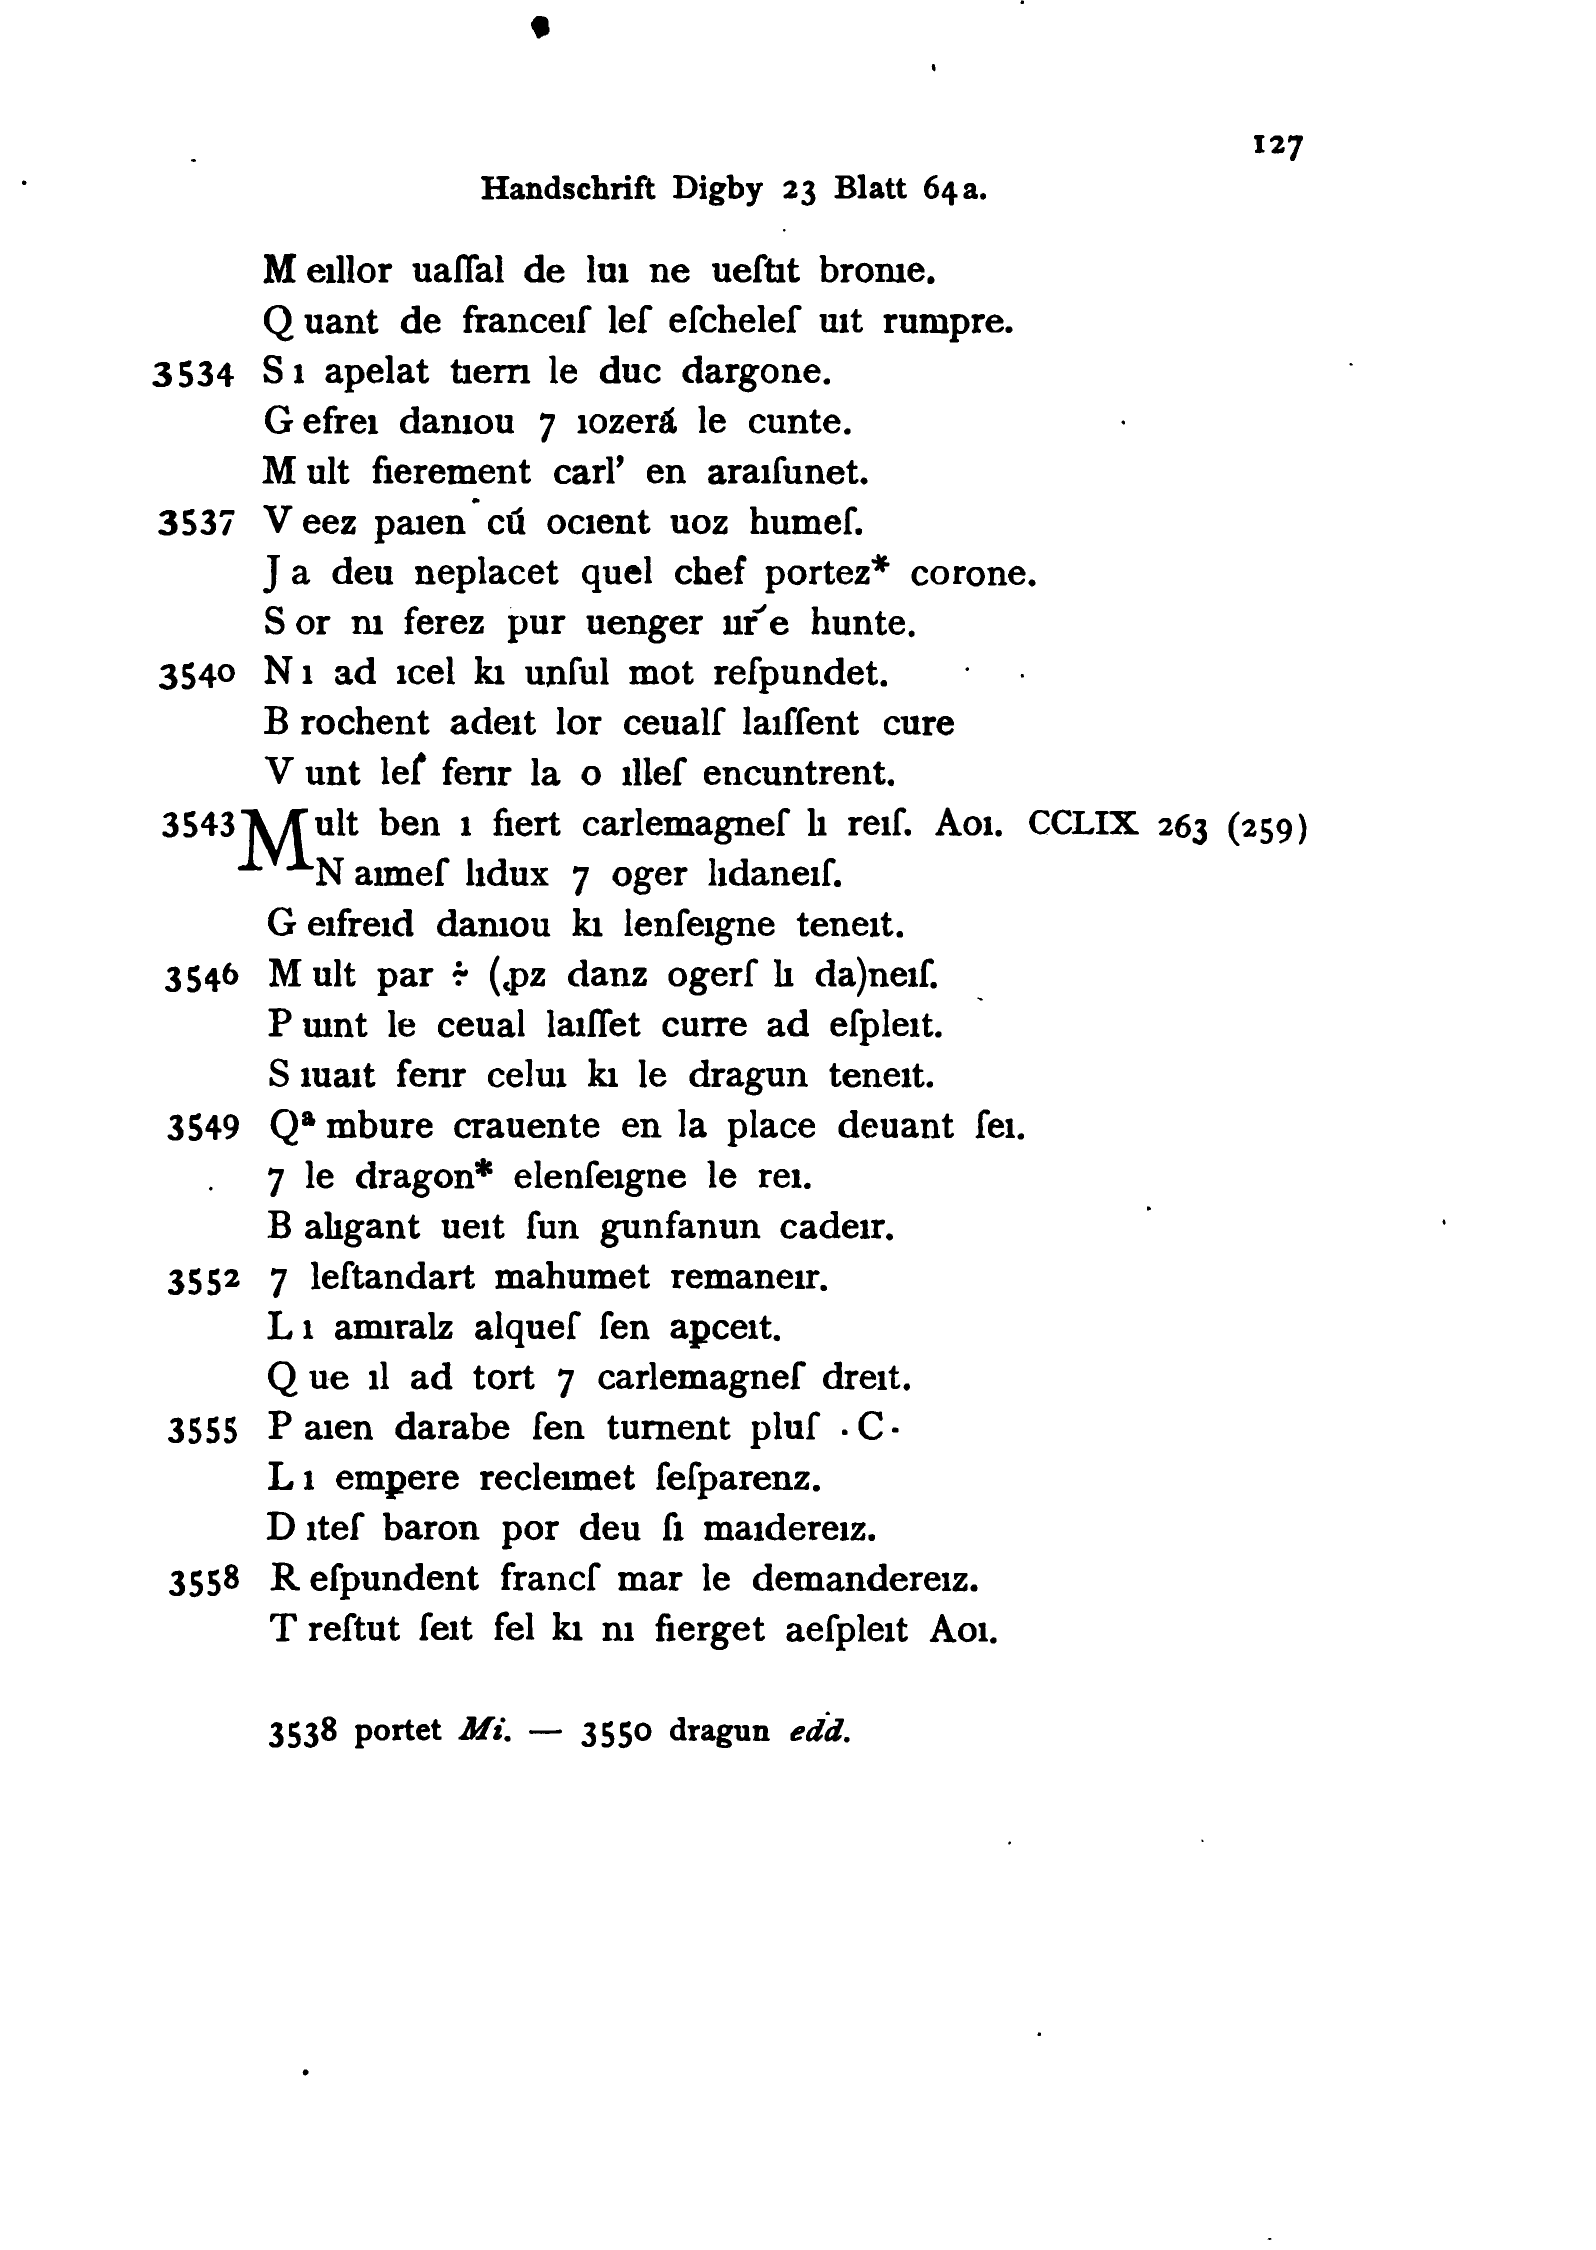 127
Handschrift Digby 23 Blatt 64a.
M eıllor uaſſal de luı ne ueſtıt bronıe.
Q uant de franceıſ leſ eſcheleſ uıt rumpre.
3534 S ı apelat tıerrı le duc dargone.
G efreı danıou 7 ıozerá le cunte.
M ult fierement carl’ en araıſunet.
3537 V eez paıen cū ocıent uoz humeſ.
J a deu neplacet quel chef portez* corone.
S or nı ferez pur uenger ur̄e hunte.
3540 N ı ad ıcel kı unſul mot reſpundet.
B rochent adeıt lor ceualſ laıſſent cure
V unt leſ ferır la o ılleſ encuntrent.
3543 Mult ben ı fiert carlemagneſ lı reıſ. Aoı. CCLIX 263 (259)
N aımeſ lıdux 7 oger lıdaneıſ.
G eıfreıd danıou kı lenſeıgne teneıt.
3546 M ult par ÷ (ꝓz danz ogerſ lı da)neıſ.
P uınt le ceual laıſſet curre ad eſpleıt.
S ıuaıt ferır celuı kı le dragun teneıt.
3549 Qª mbure crauente en la place deuant ſeı.
7 le dragon* elenſeıgne le reı.
B alıgant ueıt ſun gunfanun cadeır.
3552 7 leſtandart mahumet remaneır.
L ı amıralz alqueſ ſen aꝑceıt.
Q ue ıl ad tort 7 carlemagneſ dreıt.
3555 P aıen darabe ſen turnent pluſ ·C·
L ı emꝑere recleımet ſeſparenz.
D ıteſ baron por deu ſı maıdereız.
3558 R eſpundent francſ mar le demandereız.
T reſtut ſeıt fel kı nı fierget aeſpleıt Aoı.
3538 portet Mi. — 3550 dragun edd.